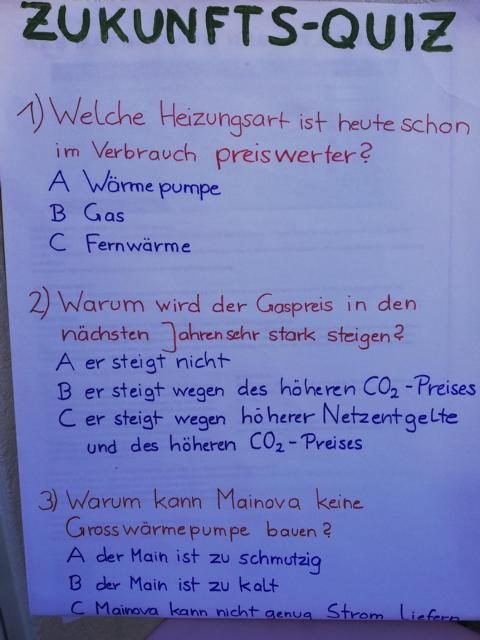 ZUKUNFTS-QUIZ
1) Welche Heizungsart ist heute schon
im Verbrauch preiswerter?
A Wärmepumpe
B Gas
C Fernwärme
2) Warum wird der Gaspreis in den
nächsten Jahren sehr stark steigen?
A er steigt nicht
B er steigt wegen des höheren CO2-Preises
C er steigt wegen höherer Netzentgelte
und des höheren CO2-Preises
3) Warum kann Mainova keine
Grosswärmepumpe bauen?
A der Main ist zu schmutzig
B der Main ist zu kalt
C Mainova kann nicht genug Strom liefern